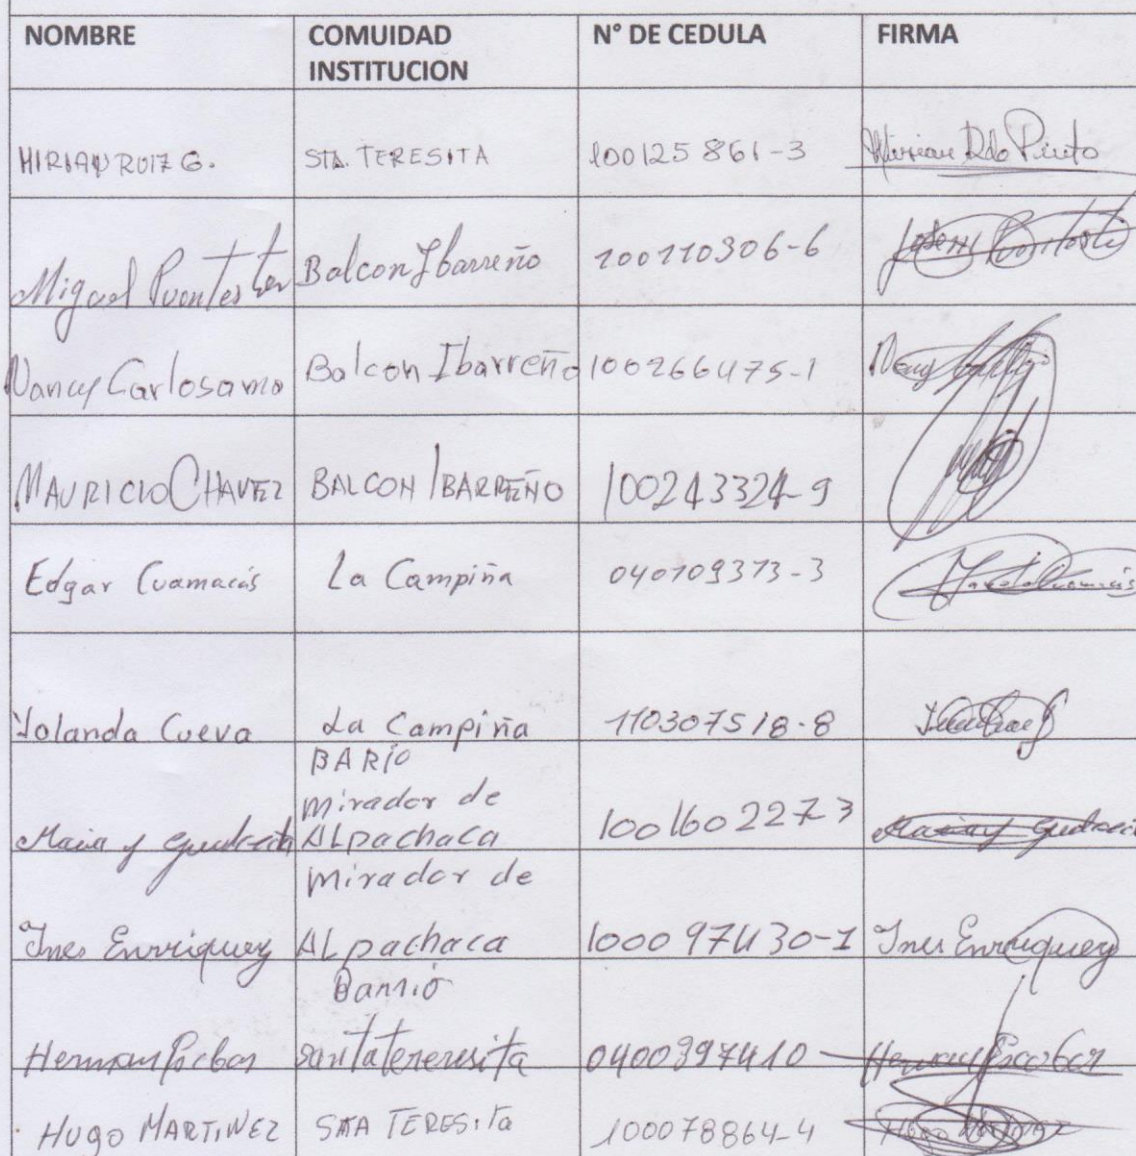 NOMBRE COMUIDAD N° DE CEDULA FIRMA
INSTITUCION
MIRIAN RUIZ G. STA. TERESITA 100125861-3 Miriam R de Pinto
Miguel Puentestar Balcon Ibarreño 100110306-6
Nancy Carlosama Balcon Ibarreño 100266475-1 Nancy
MAURICIO CHAVEZ BALCON IBARREÑO 100243324-9
Edgar Cuamacás La Campiña 040109373-3
Yolanda Cueva La Campiña 110307518-8
BARIO
Mirador de
Maria ALpachaca 100160227-3 Maria
Mirador de
Ines Enrriquez ALpachaca 100097430-1 Ines Enrriquez
Barrió
Hernan Escobar santatereresita 0400397410 Hernan Escobar
HUgo MARTiNEZ STA TERESiTa 100078864-4